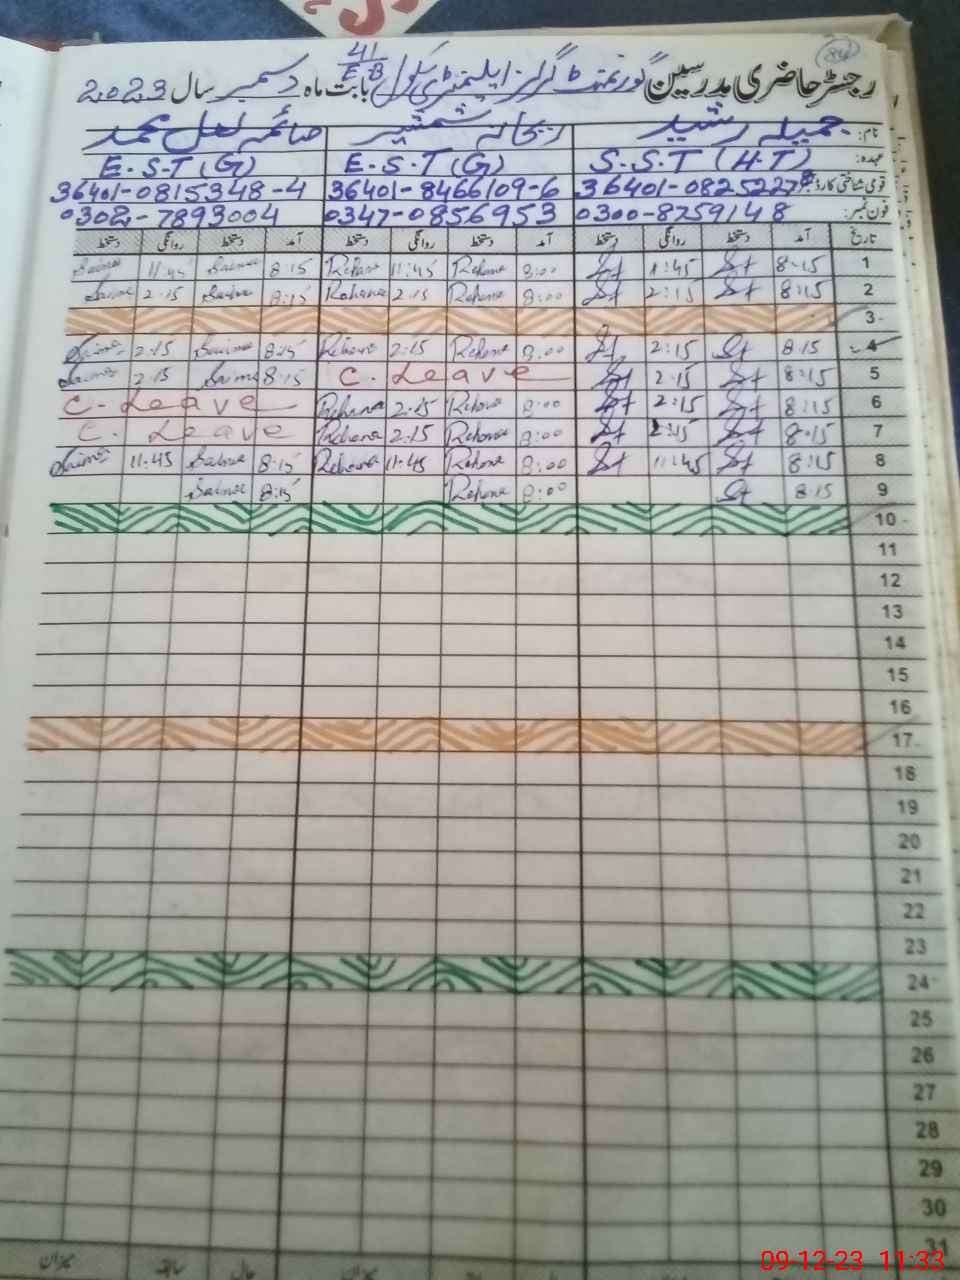 84
رجسٹر حاضری مدرسین گورنمنٹ گرلز ایلیمنٹری سکول 41/E.B بابت ماہ دسمبر سال 2023
نام: جمیلہ رشید ریحانہ شمشیر صائمہ لعل محمد
عہدہ: S.S.T (H.T) E.S.T (G) E.S.T (G)
قومی شناختی کارڈ 36401-0825227-8 36401-8466109-6 36401-0815348-4
فون نمبر: 0300-8759148 0347-0856953 0302-7893004
تاریخ آمد دستخط روانگی دستخط آمد دستخط روانگی دستخط آمد دستخط روانگی دستخط
1 8:15 1:45 8:00 Rehana 11:45 Rehana 8:15 Saima 11:45 Saima
2 8:15 2:15 8:00 Rehana 2:15 Rehana 8:15 Saima 2:15 Saima
3
4 8:15 2:15 8:00 Rehana 2:15 Rehana 8:15 Saima 2:15 Saima
5 8:15 2:15 C. Leave 8:15 Saima 2:15 Saima
6 8:15 2:15 8:00 Rehana 2:15 Rehana C. Leave
7 8:15 2:15 8:00 Rehana 2:15 Rehana C. Leave
8 8:15 11:45 8:00 Rehana 11:45 Rehana 8:15 Saima 11:45 Saima
9 8:15 8:00 Rehana 8:15 Saima
10
11
12
13
14
15
16
17
18
19
20
21
22
23
24
25
26
27
28
29
30
31
حال میزان حال سابقہ میزان
09-12-23 11:33